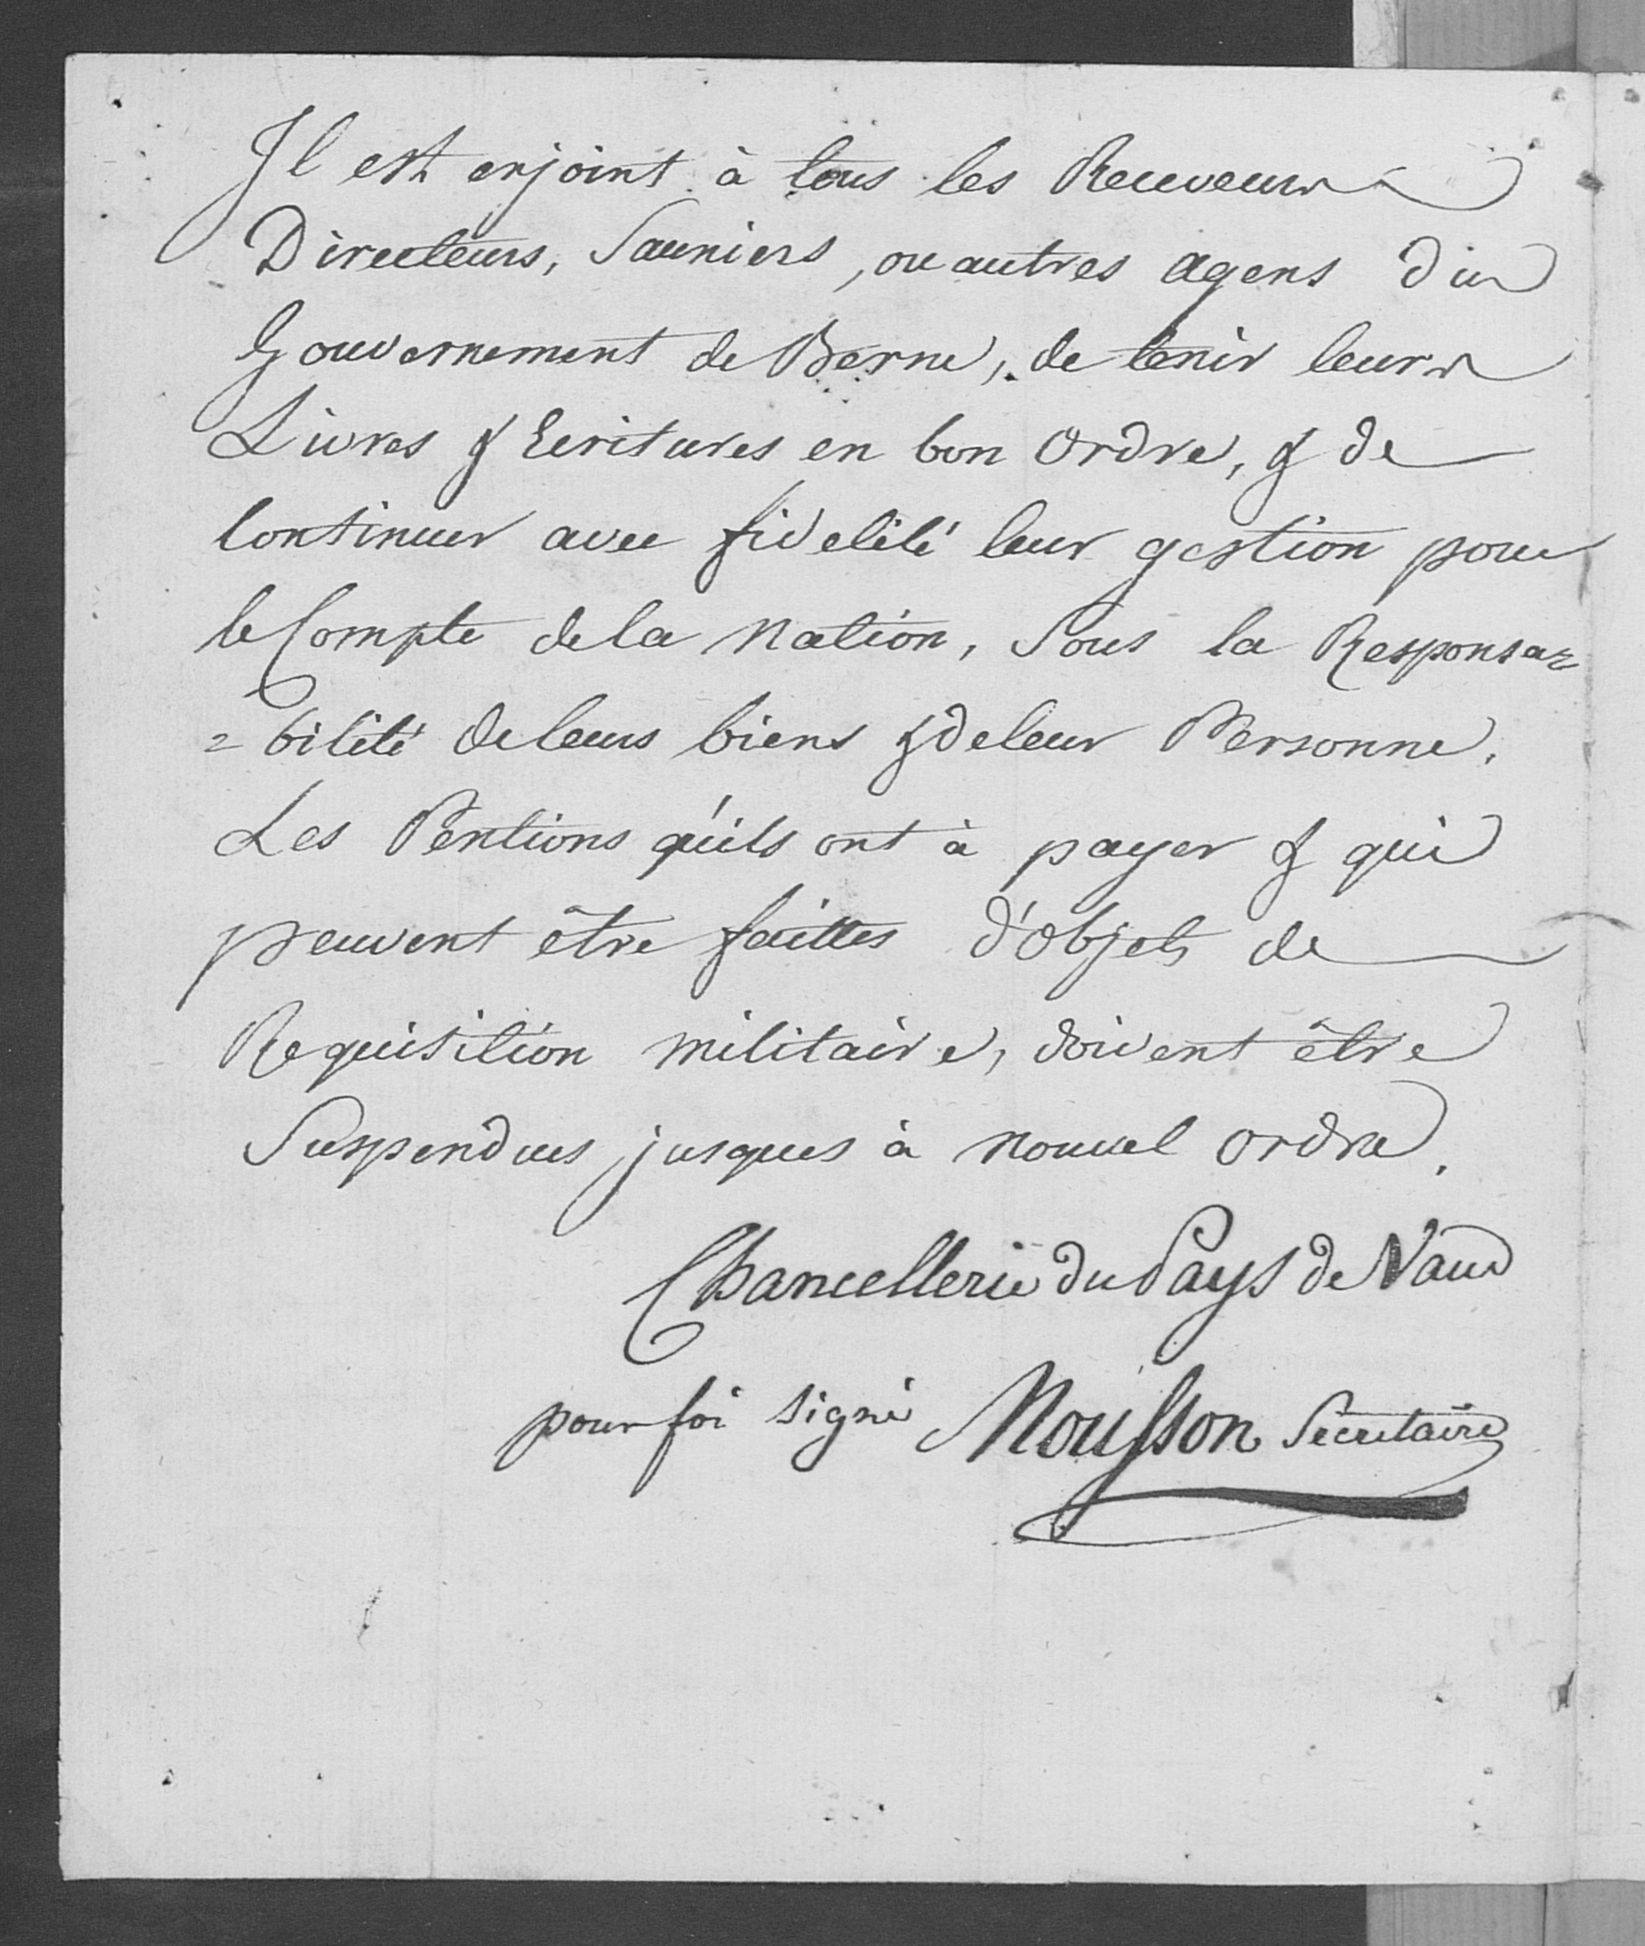 Il est enjoint à tous les Receveurs
Directeurs, Sauniers, ou autres agens du
Gouvernement de Berne, de tenir leurs
Livres & Ecritures en bon Ordre, & de
Continuer avec fidelité leur gestion pour
le Compte de la Nation, Sous la Responsa=
=bilité de leurs biens & de leur Personne.
Les Pentions qu'ils ont à payer & qui
peuvent être faittes d'Objets de
Requisition militaire, doivent être
Suspendues jusques à nouvel ordre.
Chancellerie du Pays de Vaud
pour foi signé Mousson Sécretaire